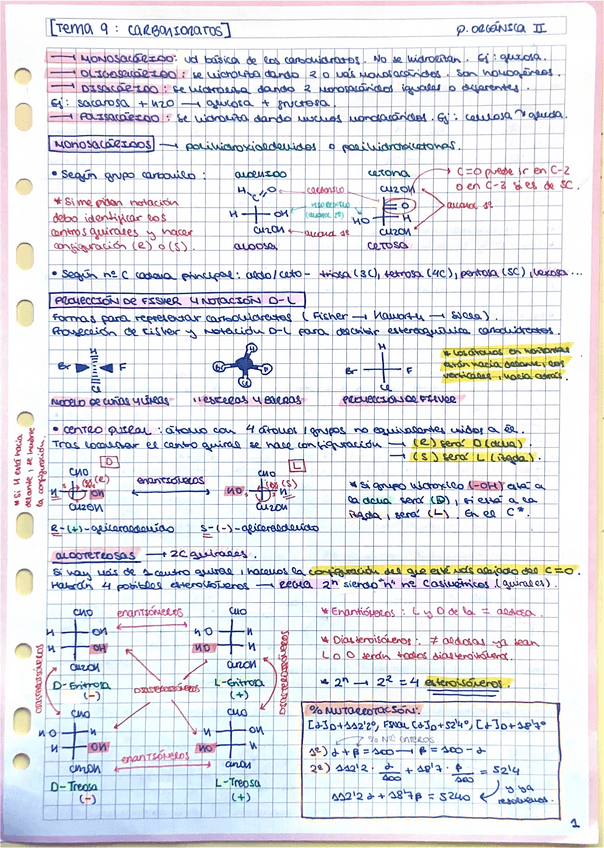 [TEMA 9: CARBOHIDRATOS]
Q. ORGÁNICA II
→ MONOSACÁRIDO: ud básica de los carbohidratos. No se hidrolizan. Ej: glucosa.
→ OLIGOSACÁRIDO: se hidroliza dando 2 o más monosacáridos. Son homogéneos.
→ DISACÁRIDO: se hidroliza dando 2 monosacáridos iguales o diferentes.
Ej: sacarosa + H2O → glucosa + fructosa.
→ POLISACÁRIDO: se hidroliza dando muchos monosacáridos. Ej: celulosa
MONOSACÁRIDOS → polihidroxialdehídos o polihidroxicetonas.
• Según grupo carbonilo:
aldehído
cetona
→ C=O puede ir en C-2
o en C-3 si es de 5C.
* Si me piden notación
debo identificar los
centros quirales y hacer
configuración (R) o (S).
H
C
O
CARBONILO
H
OH
(alcohol 2º)
CH2OH
alcohol 1º
aldosa
CH2OH
O
HO
H
CH2OH
alcohol 1º
cetosa
• Según nº C cadena principal: aldo/ceto - triosa (3C), tetrosa (4C), pentosa (5C), hexosa ...
PROYECCIÓN DE FISHER Y NOTACIÓN D-L
Formas para representar carbohidratos (Fisher → Haworth → Silla).
Proyección de Fisher y Notación D-L para describir estereoquímica carbohidratos.
H
Br
F
Cl
H
Br
F
Cl
H
Br
F
Cl
* Los átomos en horizontal
están hacia delante, los
verticales, hacia atrás.
MODELO DE CUÑAS Y LÍNEAS
" ESFERAS Y BARRAS
PROYECCIÓN DE FISHER
• CENTRO QUIRAL: átomo con 4 átomos/grupos no equivalentes unidos a él.
Tras localizar el centro quiral se hace configuración
→ (R) será D (dcha)
→ (S) será L (izqda).
* Si H está hacia
delante, se invierte
la configuración.
D
CHO
(R)
H
OH
CH2OH
ENANTIÓMEROS
L
CHO
(S)
HO
H
CH2OH
* Si grupo hidroxilo (-OH) está a
la dcha será (D), si está a la
izqda, será (L). En el C*.
R-(+)-gliceraldehído
S-(-)-gliceraldehído
ALDOTETROSAS → 2C quirales.
Si hay más de 1 centro quiral, hacemos la configuración del que esté más alejado del C=O.
Habrán 4 posibles estereoisómeros → REGLA 2ⁿ siendo "n" nº C asimétricos (quirales).
CHO
H
OH
H
OH
CH2OH
D-Eritrosa
(-)
ENANTIÓMEROS
CHO
HO
H
HO
H
CH2OH
L-Eritrosa
(+)
DIASTEREISÓMEROS
DIASTEREISÓMEROS
DIASTEREISÓMEROS
CHO
HO
H
H
OH
CH2OH
D-Treosa
(-)
ENANTIÓMEROS
CHO
H
OH
HO
H
CH2OH
L-Treosa
(+)
* Enantiómeros: L y D de la = aldosa.
* Diastereisómeros: ≠ aldosas ya sean
L o D serán todos diastereisómeros.
* 2ⁿ → 2² = 4 estereoisómeros.
% MUTARROTACIÓN:
[α]D+112'2º, FINAL [α]D+52'4º, [α]D+18'7º
% Nº ENTEROS
1º) α + β = 100 → β = 100 - α
2º) 112'2 · α/100 + 18'7 · β/100 = 52'4
112'2 α + 18'7 β = 5240
y ya
resolvemos.
1